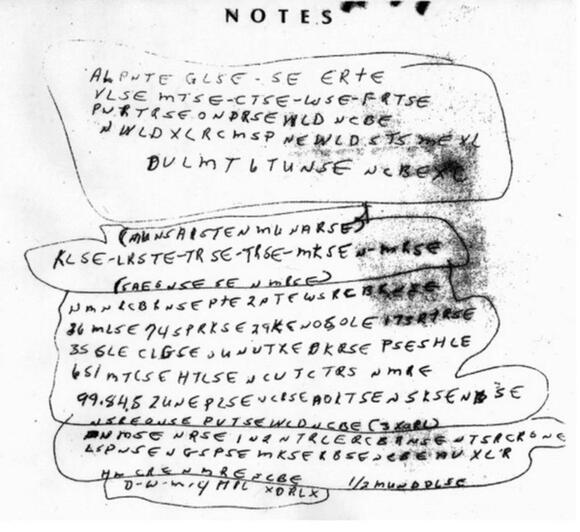 NOTES
ALPNTE GLSE-SE ERTE
VLSE MTSE-CTSE-WSE-FRTSE
PVRTRSEONDRSEWLD NCBE
NWLDXLRCMSP NEWLDSTSMEXL
DULMT6TUNSE NCBEXL
(MUNSAISTENMUNARSE)
KLSE-LRSTE-TRSE-TRSE-MKSEN-MRSE
(SAEGNSESE N MRSE)
NMNRCBRNSEPTE2NTEWSRCBRNSE
36MLSE74SPRKSE29KENOSOLE173RTRSE
35GLE CLGSEOUNUTXEDKRSE PSESHLE
651MTCSEHTLSENCUTCTRS NMRE
99.84.52UNEPLSENCRSEAOLTSENSKSENBSE
NSREONSE PVTSEWLDNCBE (3XORL)
NMSE NRSE IN2NTRLERCBRNSENTSRCRONE
LSPNSENGSPSE MKSERBSENCBEAUXLR
HM CRE NMRE NCBE 1/2MUNDDLSE
D-W-M-4 MIL XDRLX